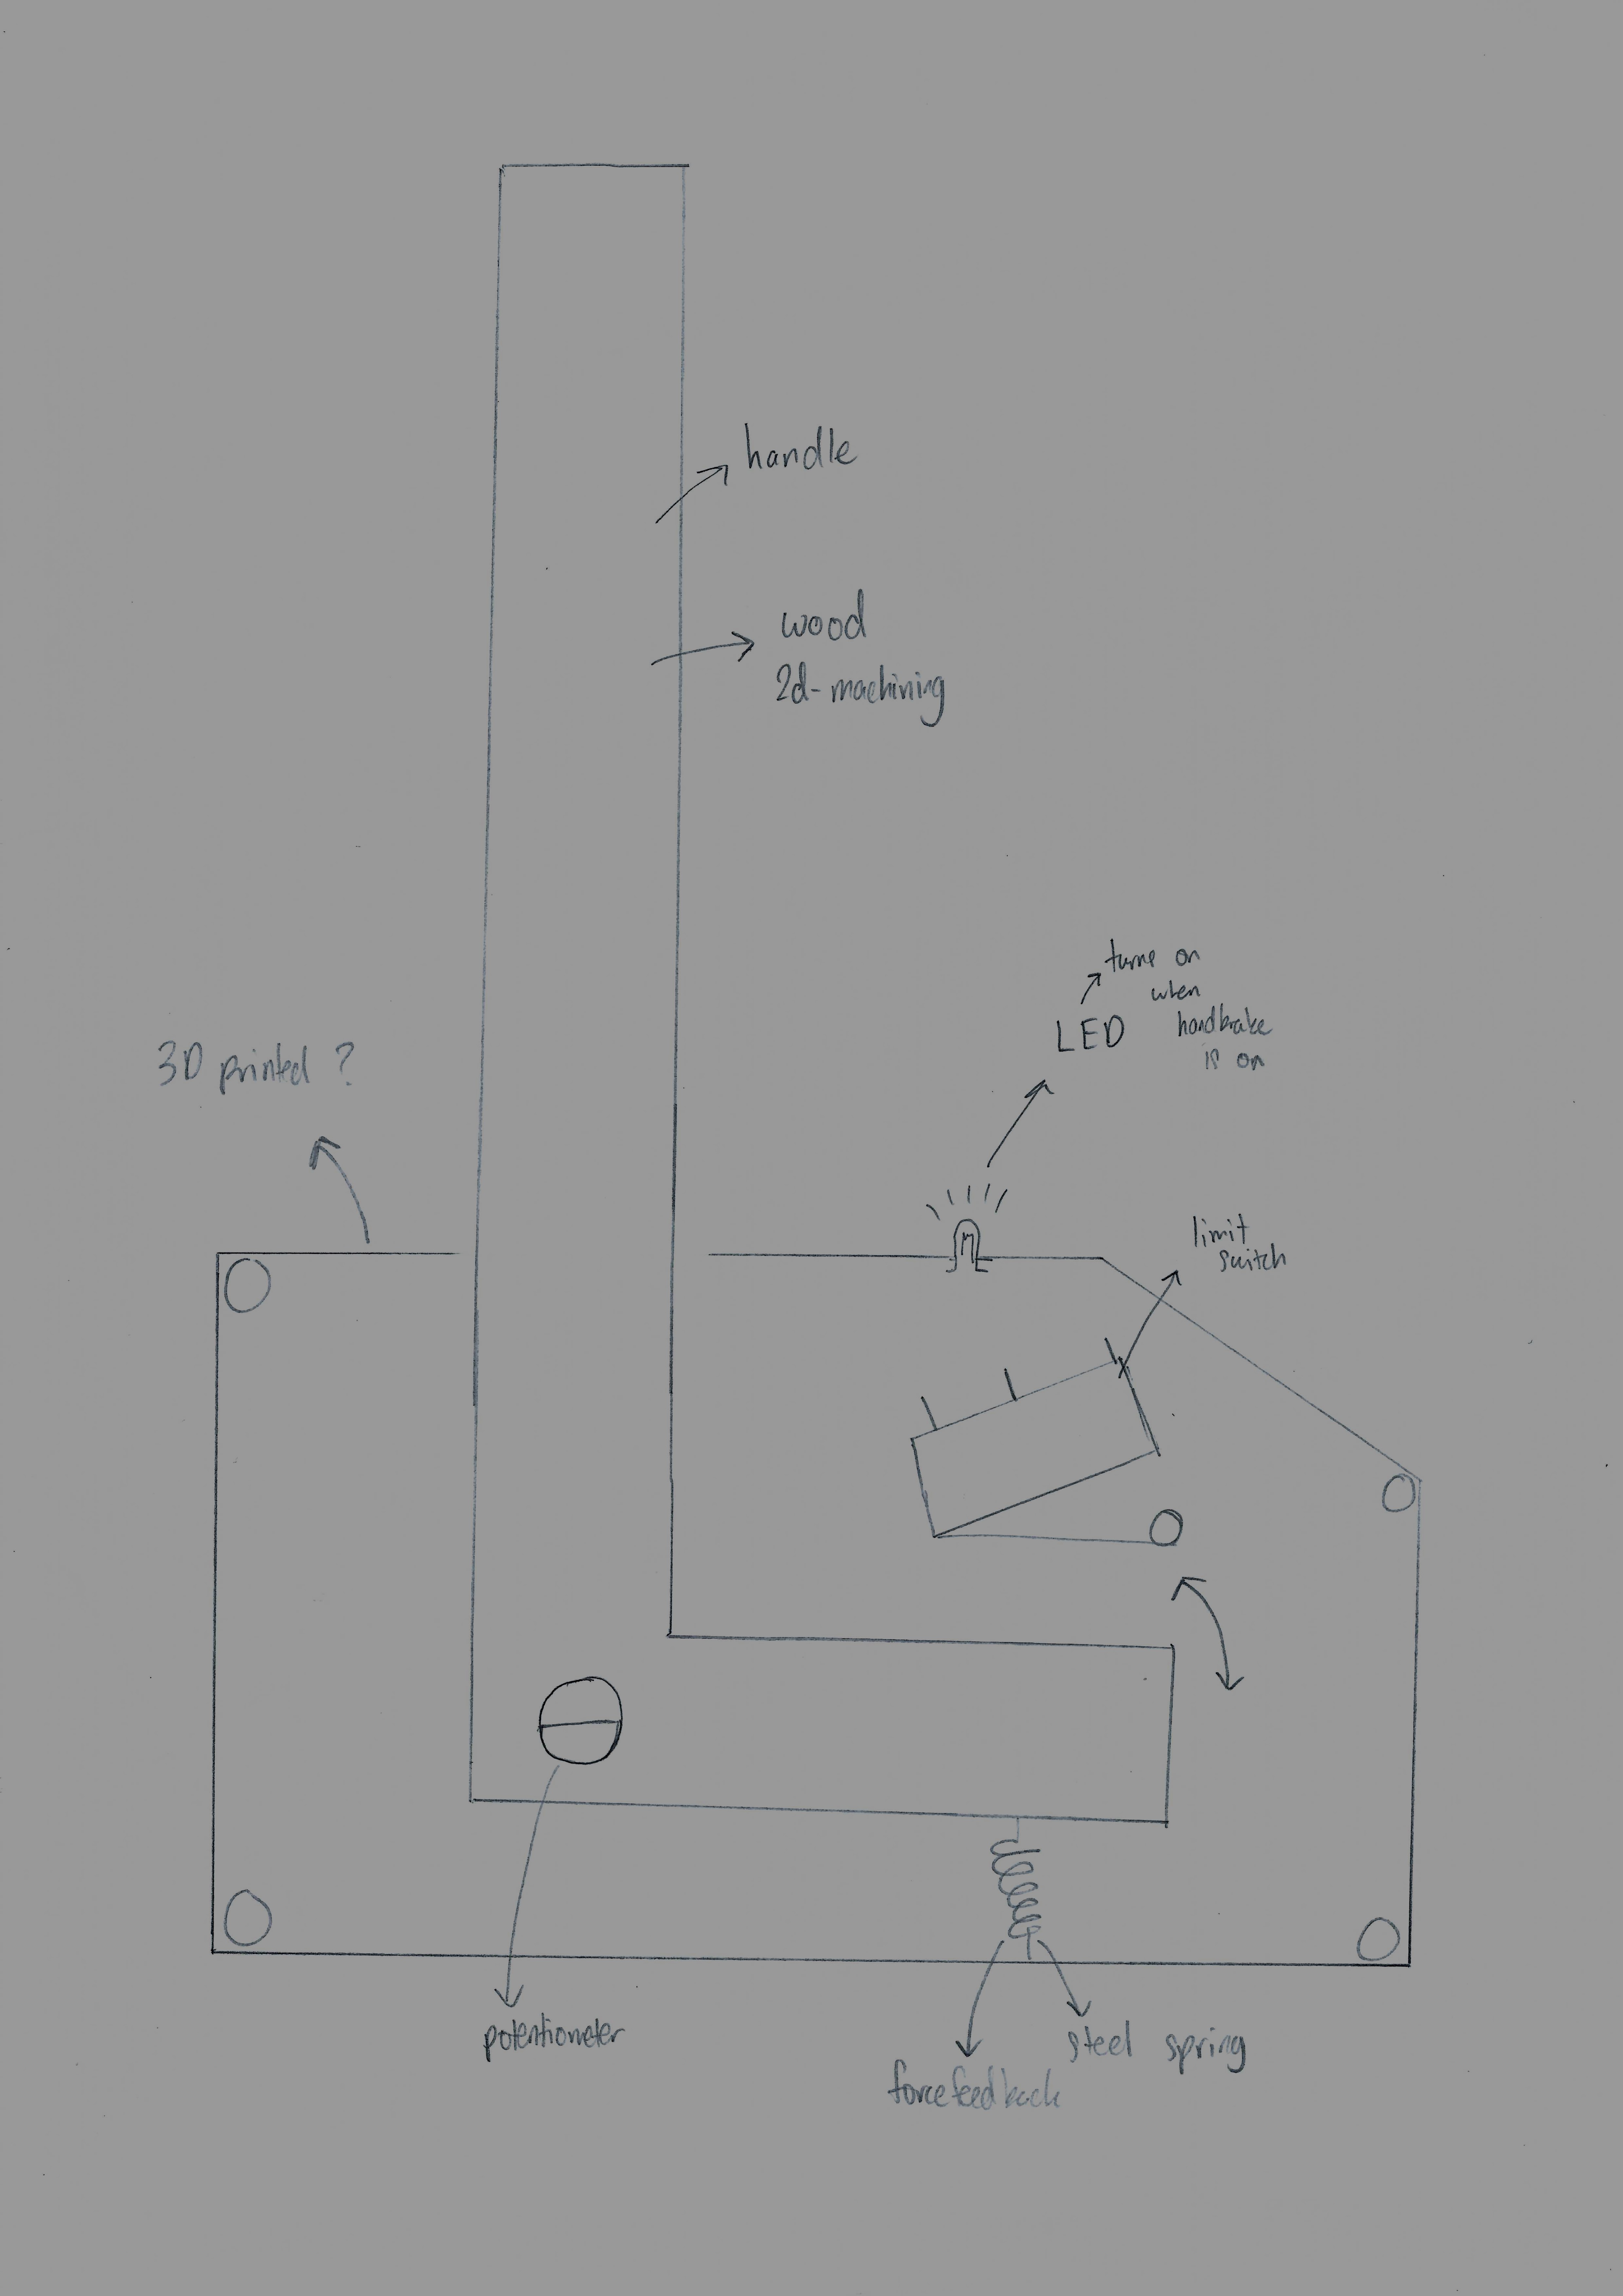 handle
wood
2d-machining
turns on
when
handbrake
is on
LED
3D printed ?
limit
switch
potentiometer
steel spring
forcefeedback